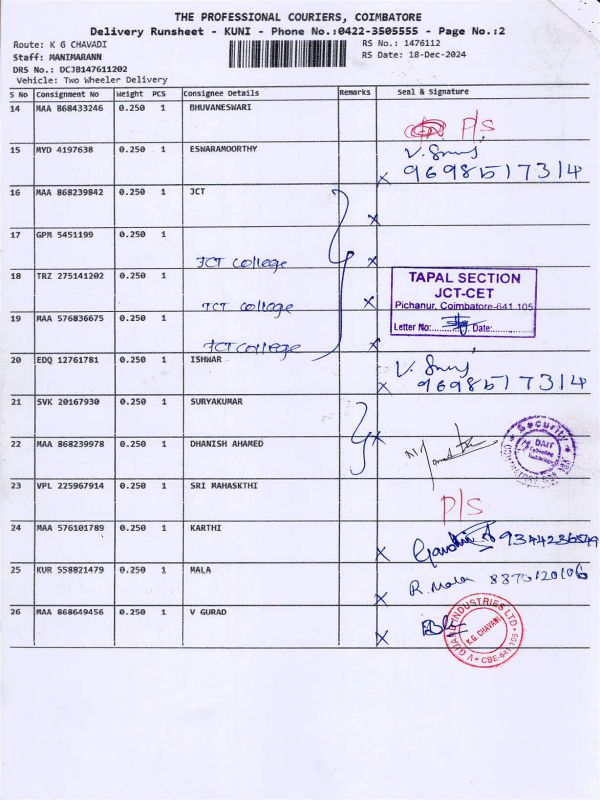 THE PROFESSIONAL COURIERS, COIMBATORE
Delivery Runsheet - KUNI - Phone No.:0422-3505555 - Page No.:2
Route: K G CHAVADI
RS No.: 1476112
Staff: MANIMARANN
RS Date: 18-Dec-2024
DRS No.: DCJB147611202
Vehicle: Two Wheeler Delivery
S No Consignment No Weight PCS Consignee Details Remarks Seal & Signature
14 MAA 868433246 0.250 1 BHUVANESWARI
P/S
15 MYD 4197638 0.250 1 ESWARAMOORTHY
9698517314
16 MAA 868239842 0.250 1 JCT
17 GPM 5451199 0.250 1
JCT College
18 TRZ 275141202 0.250 1
JCT College
TAPAL SECTION
JCT-CET
Pichanur, Coimbatore-641 105
Letter No: Date:
19 MAA 576836675 0.250 1
JCT College
20 EDQ 12761781 0.250 1 ISHWAR
9698517314
21 SVK 20167930 0.250 1 SURYAKUMAR
Security
22 MAA 868239978 0.250 1 DHANISH AHAMED
23 VPL 225967914 0.250 1 SRI MAHASKTHI
P/S
24 MAA 576101789 0.250 1 KARTHI
25 KUR 558821479 0.250 1 MALA
R. Mala 8870120106
26 MAA 868649456 0.250 1 V GURAD
V GUARD INDUSTRIES LTD
K.G. CHAVADI
CBE-641 105